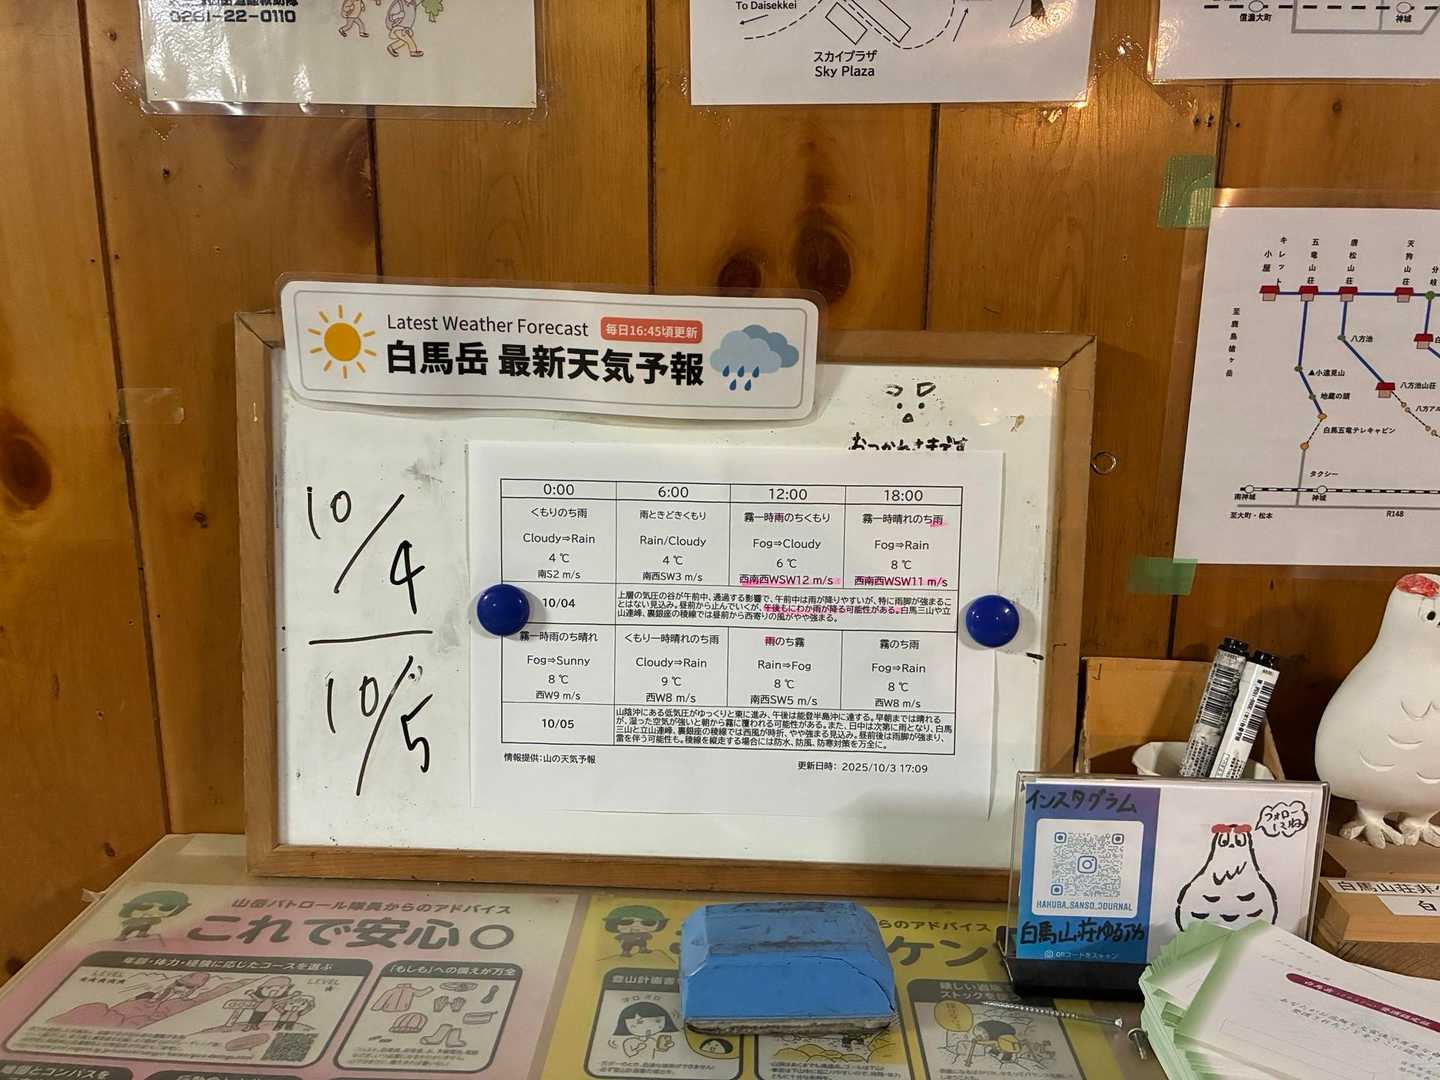 0261-22-0110
To Daisekkei
スカイプラザ
Sky Plaza
信濃大町
神城
Latest Weather Forecast
毎日16:45頃更新
白馬岳 最新天気予報
10/4
10/5
0:00 6:00 12:00 18:00
くもりのち雨 雨ときどきくもり 霧一時雨のちくもり 霧一時晴れのち雨
Cloudy⇒Rain Rain/Cloudy Fog⇒Cloudy Fog⇒Rain
4 ℃ 4 ℃ 6 ℃ 8 ℃
南S2 m/s 南西SW3 m/s 西南西WSW12 m/s 西南西WSW11 m/s
10/04
上層の気圧の谷が午前中、通過する影響で、午前中は雨が降りやすいが、特に雨脚が強まるこ
とはない見込み。昼前から止んでいくが、午後もにわか雨が降る可能性がある。白馬三山や立
山連峰、裏銀座の稜線では昼前から西寄りの風がやや強まる。
霧一時雨のち晴れ くもり一時晴れのち雨 雨のち霧 霧のち雨
Fog⇒Sunny Cloudy⇒Rain Rain⇒Fog Fog⇒Rain
8 ℃ 9 ℃ 8 ℃ 8 ℃
西W9 m/s 西W8 m/s 南西SW5 m/s 西W8 m/s
10/05
山陰沖にある低気圧がゆっくりと東に進み、午後は能登半島沖に達する。早朝までは晴れる
が、湿った空気が強いと朝から霧に覆われる可能性がある。また、日中は次第に雨となり、白馬
三山と立山連峰、裏銀座の稜線では西風が時折、やや強まる見込み。昼前後は雨脚が強まり、
雷を伴う可能性も。稜線を縦走する場合には防水、防風、防寒対策を万全に。
情報提供:山の天気予報
更新日時： 2025/10/3 17:09
キレット小屋
五竜山荘
唐松山荘
天狗山荘
至鹿島槍ヶ岳
八方池
▲小遠見山
地蔵の頭
八方池山荘
白馬五竜テレキャビン
タクシー
南神城
神城
至大町・松本
R148
インスタグラム
HAKUBA_SANSO_JOURNAL
QRコードをスキャン
フォローしてね
山岳パトロール隊員からのアドバイス
これで安心○
年齢・体力・経験に応じたコースを選ぶ
「もしも」への備えが万全
LEVEL
★★★★★
LEVEL
★
らのアドバイス
ケン
登山計画書
地図とコンパスを